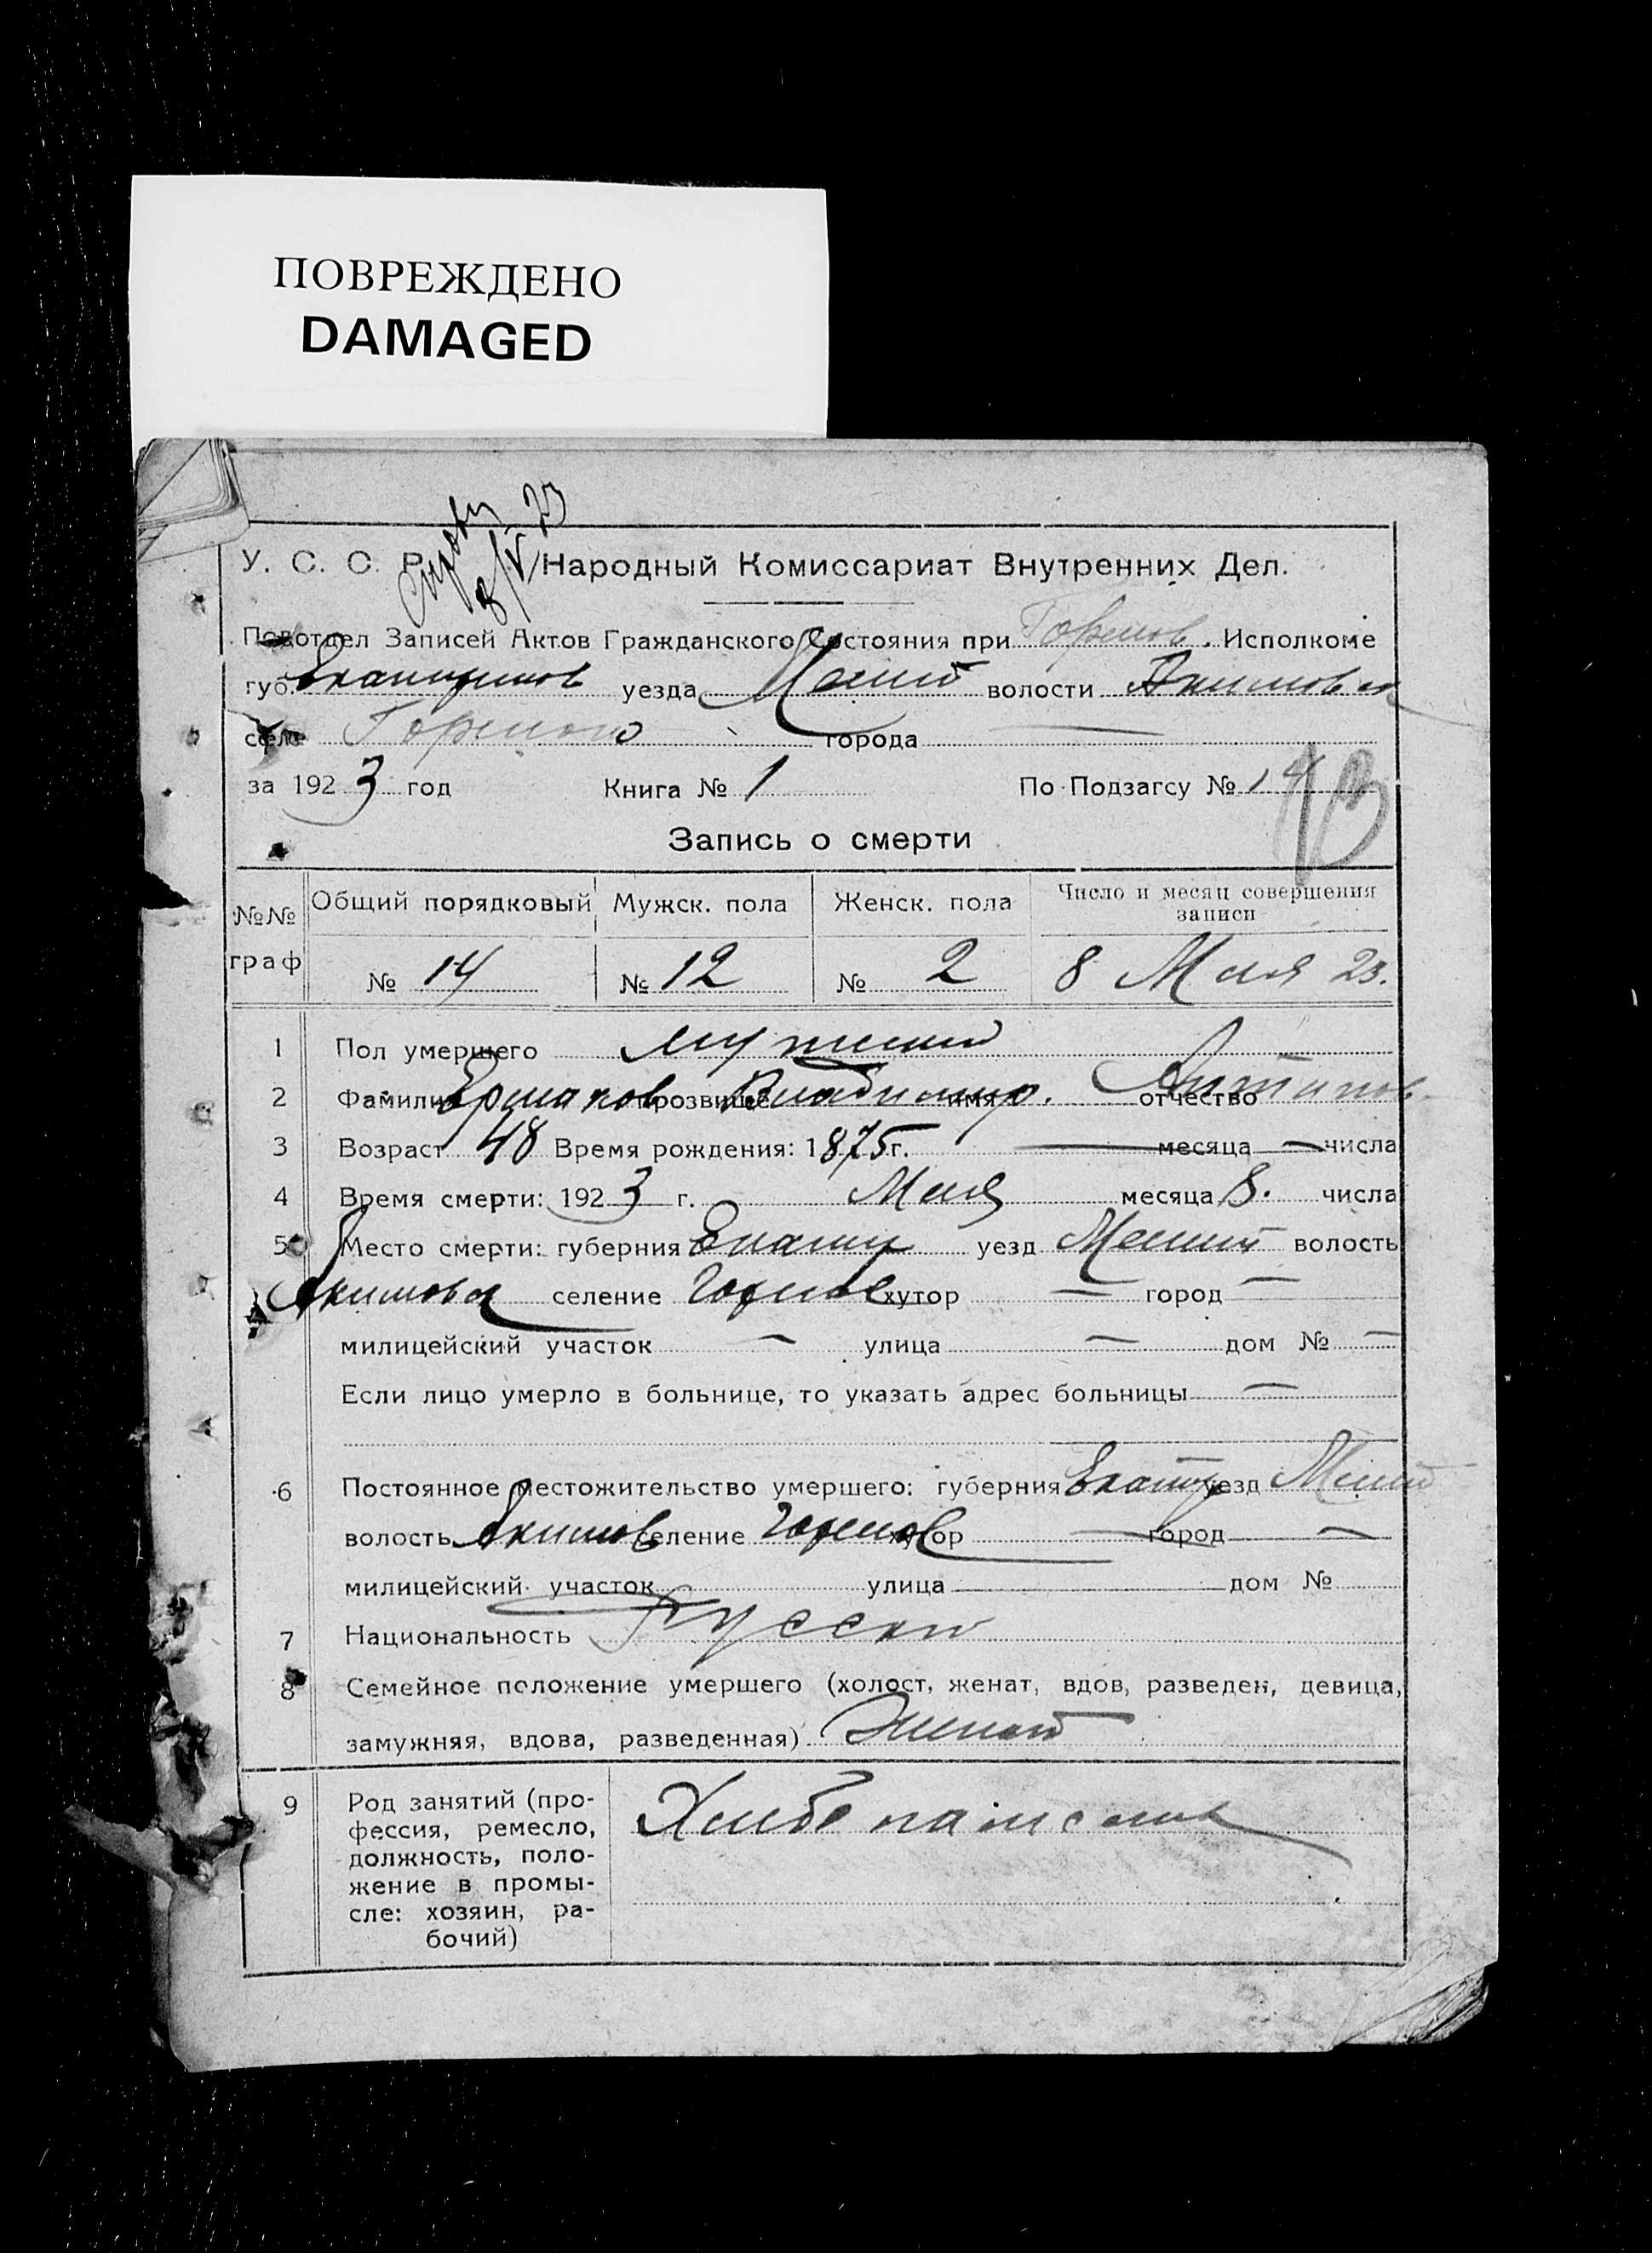 ПОВРЕЖДЕНО
DAMAGED
8/V 23
У. С. С. Р. Народный Комиссариат Внутренних Дел.
Подотдел Записей Актов Гражданского Состояния при Горелов. Исполкоме
губ. Екатеринов уезда Мелит волости Акимовск
селе Горелого города —
за 1923 год Книга № 1 По Подзагсу № 14
13
Запись о смерти
№№ граф Общий порядковый Мужск. пола Женск. пола Число и месяц совершения записи
№ 14 № 12 № 2 8 Мая 23.
1 Пол умершего мужской
2 Фамилия Ершаков прозвище Владимир. имя отчество Антипов
3 Возраст 48 Время рождения: 1875 г. — месяца — числа
4 Время смерти: 1923 г. Мая месяца 8. числа
5 Место смерти: губерния Екатер уезд Мелит волость
Акимовск селение Горелое хутор — город —
милицейский участок — улица — дом № —
Если лицо умерло в больнице, то указать адрес больницы —
6 Постоянное местожительство умершего: губерния Екатер уезд Мелит
волость Акимов селение Горелов хутор — город —
милицейский участок улица дом №
7 Национальность Русский
8 Семейное положение умершего (холост, женат, вдов, разведен, девица,
замужняя, вдова, разведенная) Женат
9 Род занятий (про- Хлебопашество
фессия, ремесло,
должность, поло-
жение в промы-
сле: хозяин, ра-
бочий)